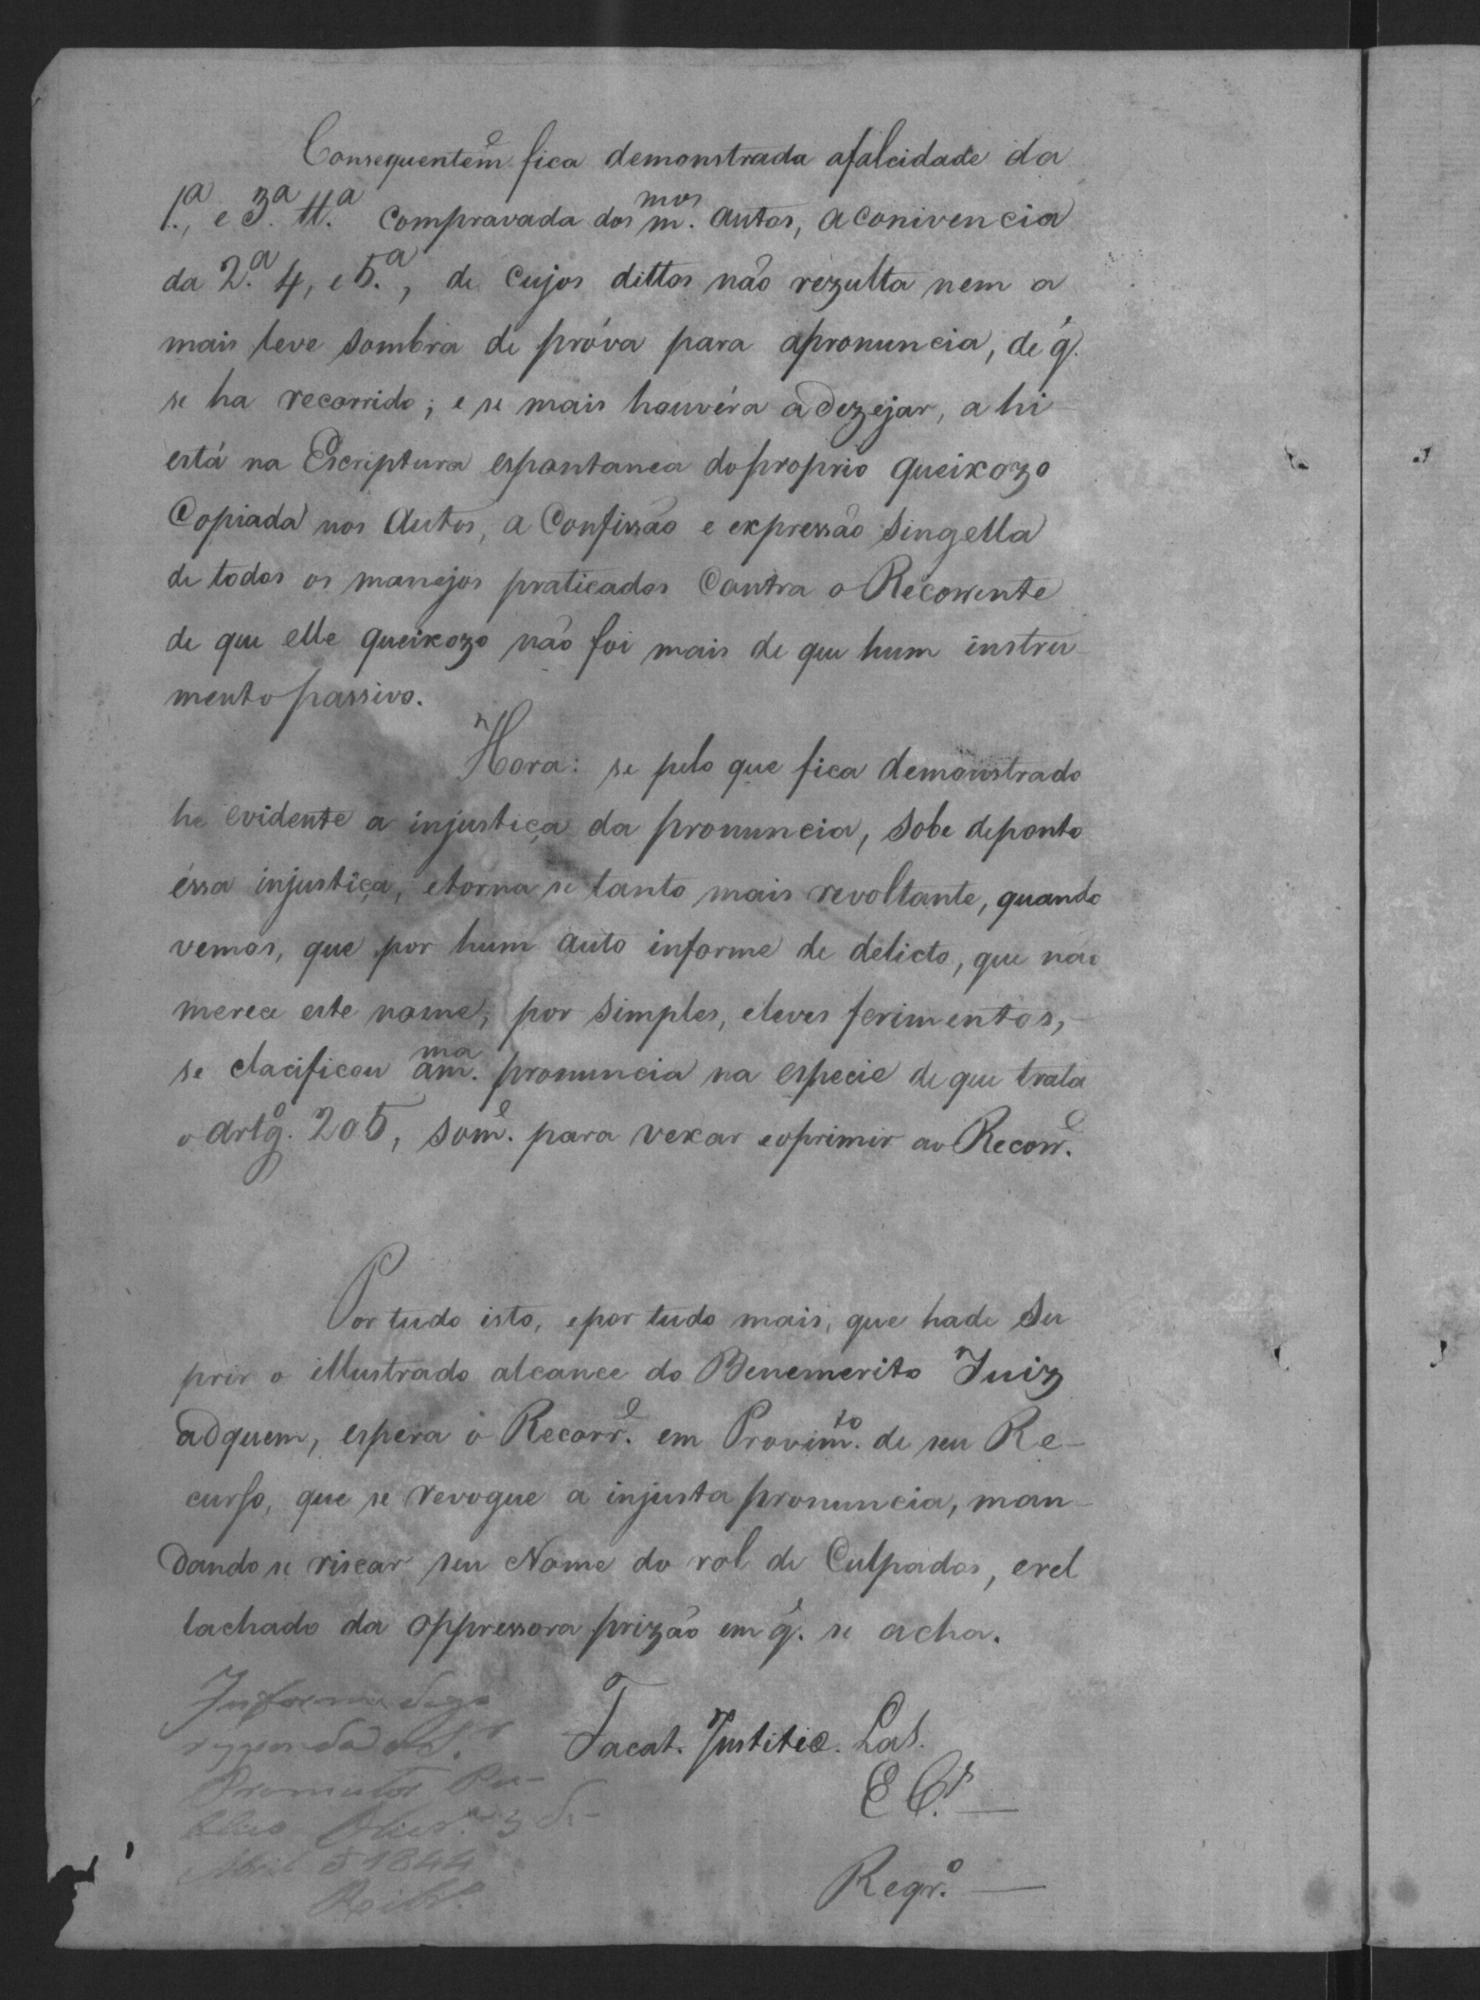 Consequentem.e fica demonstrada afalcidade da
1.a, e 3.a tt.a compravada dos m.mos autos, a conivencia
da 2.a 4, e 5.a, de cujos dittos não rezulta nem a
mais leve sombra de próva para apronuncia, de q.
se ha recorrido; e se mais houvéra a dezejar, a hi
está na Escriptura espontanea do proprio queixozo
Copiada nos Autos, a Confissão e expressão singella
de todos os manejos praticados Contra o Recorrente
de que elle queixozo não foi mais de que hum instru
mento passivo.
Hora: se pelo que fica demonstrado
he evidente a injustiça da pronuncia, sobe deponto
éssa injustiça, etorna se tanto mais revoltante, quando
vemos, que por hum auto informe de delicto, que não
merece este nome, por simples, eleves ferimentos,
se clacificou am.ma pronuncia na especie de que trata
o artg.o 205, som.e para vexar eoprimir ao Recorr.e
Por tudo isto, epor tudo mais, que hade su
prir o illustrado alcance do Benemerito Juiz
adquem, espera o Recorr.e em Provim.to de seu Re-
curso, que se revogue a injusta pronuncia, man-
dando se riscar seu Nome do rol de Culpados, erel
lachado da oppressora prizão em q. se acha.
Facat. Justitie. Las.
E C.s
Regr.o
Informe digo
responda o S.r
Promutor Pu-
blico
3 de
Abril d 1844